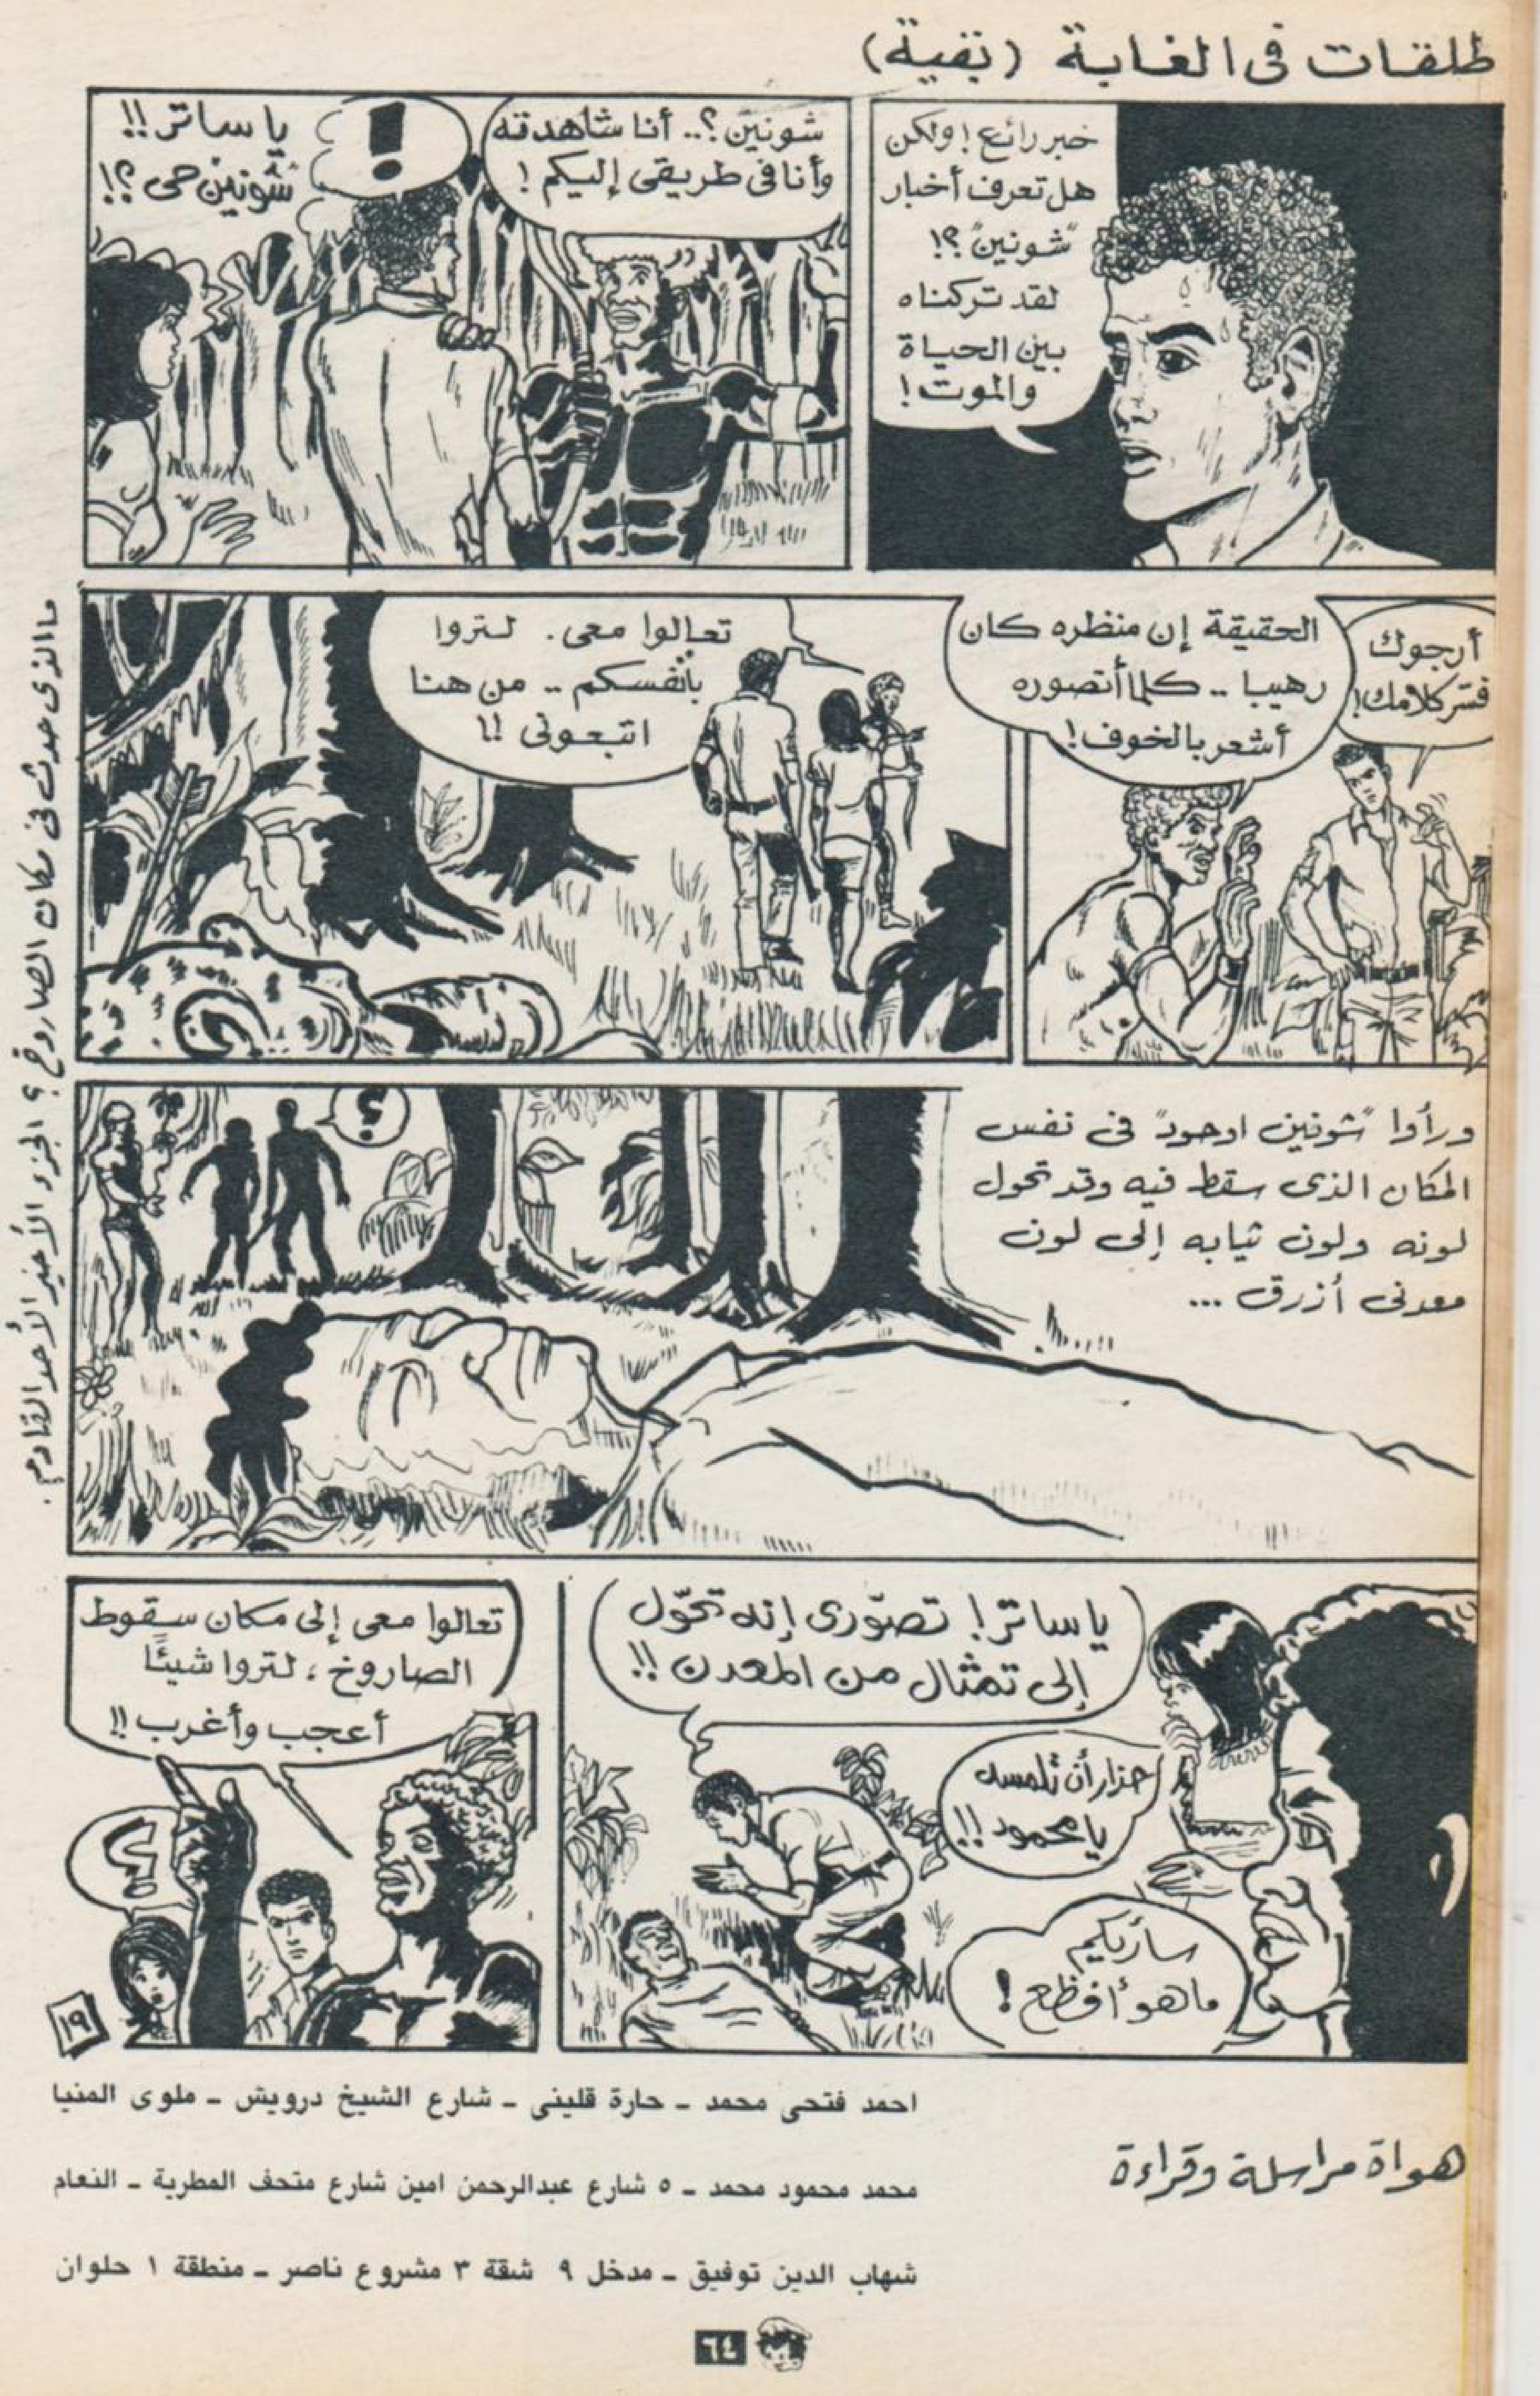 طلقات فى الغابة (بقية)
خبر رائع! ولكن
هل تعرف أخبار
"شونين"؟!
لقد تركناه
بين الحياة
والموت!
شونين؟.. أنا شاهدته
وأنا فى طريقى إليكم!
!
يا ساتر!!
شونين حى؟!
أرجوك
فسّر كلامك!
الحقيقة إن منظره كان
رهيبا .. كلما أتصوره
أشعر بالخوف!
تعالوا معى. لتروا
بأنفسكم .. من هنا
اتبعونى !!
ورأوا "شونين اوجود" فى نفس
المكان الذى سقط فيه وقد تحول
لونه ولون ثيابه إلى لون
معدنى أزرق ...
؟
يا ساتر! تصوّرى إنه تحوّل
إلى تمثال من المعدن !!
حذار أن تلمسه
يا محمود !!
سأريكم
ما هو أفظع!
تعالوا معى إلى مكان سقوط
الصاروخ، لتروا شيئًا
أعجب وأغرب !!
؟
١٩
ما الذى حدث فى مكان الصاروخ؟ الجزء الأخير الأحد القادم.
هواة مراسلة وقراءة
احمد فتحى محمد - حارة قلينى - شارع الشيخ درويش - ملوى المنيا
محمد محمود محمد - ٥ شارع عبدالرحمن امين شارع متحف المطرية - النعام
شهاب الدين توفيق - مدخل ٩ شقة ٣ مشروع ناصر - منطقة ١ حلوان
٦٤